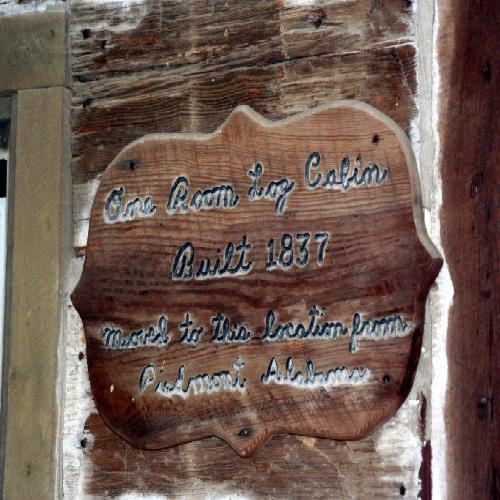 One Room Log Cabin
Built 1837
moved to this location from
Piedmont Alabama